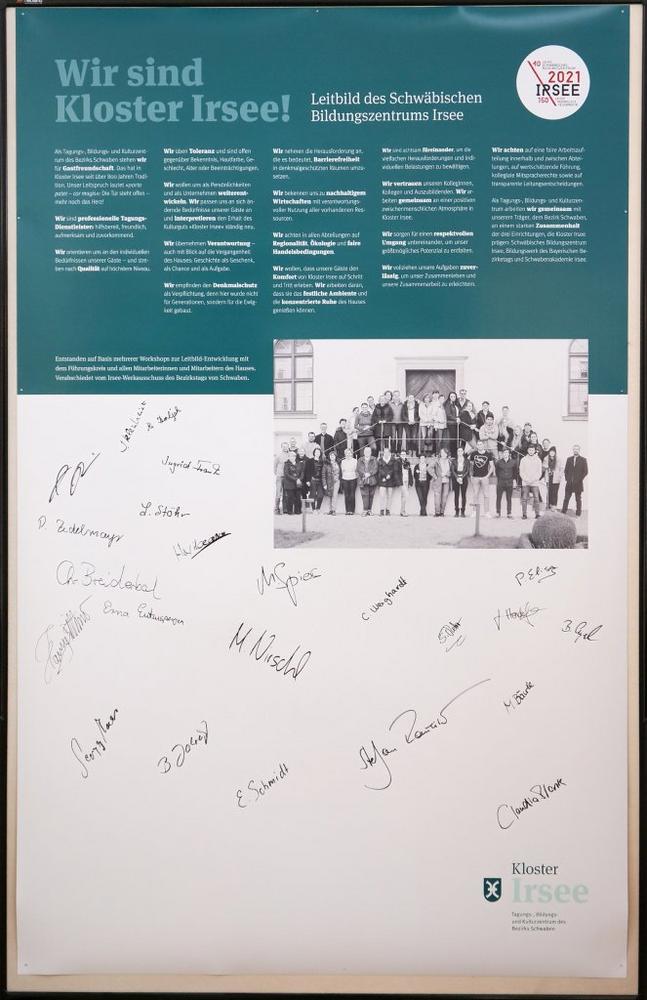 Wir sind
Kloster Irsee!
Leitbild des Schwäbischen
Bildungszentrums Irsee
40
2021
IRSEE
150
Als Tagungs-, Bildungs- und Kulturzent-
rum des Bezirks Schwaben stehen wir
für Gastfreundschaft. Das hat in
Kloster Irsee seit über 800 Jahren Tradi-
tion. Unser Leitspruch lautet »porta
patet – cor magis«: Die Tür steht offen –
mehr noch das Herz!
Wir sind professionelle Tagungs-
Dienstleister: hilfsbereit, freundlich,
aufmerksam und zuvorkommend.
Wir orientieren uns an den individuellen
Bedürfnissen unserer Gäste – und stre-
ben nach Qualität auf höchstem Niveau.
Wir üben Toleranz und sind offen
gegenüber Bekenntnis, Hautfarbe, Ge-
schlecht, Alter oder Beeinträchtigungen.
Wir wollen uns als Persönlichkeiten
und als Unternehmen weiterent-
wickeln. Wir passen uns an sich än-
dernde Bedürfnisse unserer Gäste an
und interpretieren den Erhalt des
Kulturguts »Kloster Irsee« ständig neu.
Wir übernehmen Verantwortung –
auch mit Blick auf die Vergangenheit
des Hauses: Geschichte als Geschenk,
als Chance und als Aufgabe.
Wir empfinden den Denkmalschutz
als Verpflichtung, denn hier wurde nicht
für Generationen, sondern für die Ewig-
keit gebaut.
Wir nehmen die Herausforderung an,
die es bedeutet, Barrierefreiheit
in denkmalgeschützten Räumen umzu-
setzen.
Wir bekennen uns zu nachhaltigem
Wirtschaften mit verantwortungs-
voller Nutzung aller vorhandenen Res-
sourcen.
Wir achten in allen Abteilungen auf
Regionalität, Ökologie und faire
Handelsbedingungen.
Wir wollen, dass unsere Gäste den
Komfort von Kloster Irsee auf Schritt
und Tritt erleben. Wir arbeiten daran,
dass sie das festliche Ambiente und
die konzentrierte Ruhe des Hauses
genießen können.
Wir sind achtsam füreinander, um die
vielfachen Herausforderungen und indi-
viduellen Belastungen zu bewältigen.
Wir vertrauen unseren Kolleginnen,
Kollegen und Auszubildenden. Wir ar-
beiten gemeinsam an einer positiven
zwischenmenschlichen Atmosphäre in
Kloster Irsee.
Wir sorgen für einen respektvollen
Umgang untereinander, um unser
größtmögliches Potenzial zu entfalten.
Wir vollziehen unsere Aufgaben zuver-
lässig, um unser Zusammenleben und
unsere Zusammenarbeit zu erleichtern.
Wir achten auf eine faire Arbeitsauf-
teilung innerhalb und zwischen Abtei-
lungen, auf wertschätzende Führung,
kollegiale Mitspracherechte sowie auf
transparente Leitungsentscheidungen.
Als Tagungs-, Bildungs- und Kulturzen-
trum arbeiten wir gemeinsam mit
unserem Träger, dem Bezirk Schwaben,
an einem starken Zusammenhalt
der drei Einrichtungen, die Kloster Irsee
prägen: Schwäbisches Bildungszentrum
Irsee, Bildungswerk des Bayerischen Be-
zirketags und Schwabenakademie Irsee.
Entstanden auf Basis mehrerer Workshops zur Leitbild-Entwicklung mit
dem Führungskreis und allen Mitarbeiterinnen und Mitarbeitern des Hauses.
Verabschiedet vom Irsee-Werkausschuss des Bezirkstags von Schwaben.
Ingrid
L. Stöhr
D. Zedelmayr
Ch. Breidenbal
Erna
M Spies
C Weighardt
M. Nirschl
Georg
B
E. Schmidt
Stefan
M. Bäurle
Claudia
Kloster
Irsee
Tagungs-, Bildungs-
und Kulturzentrum des
Bezirks Schwaben